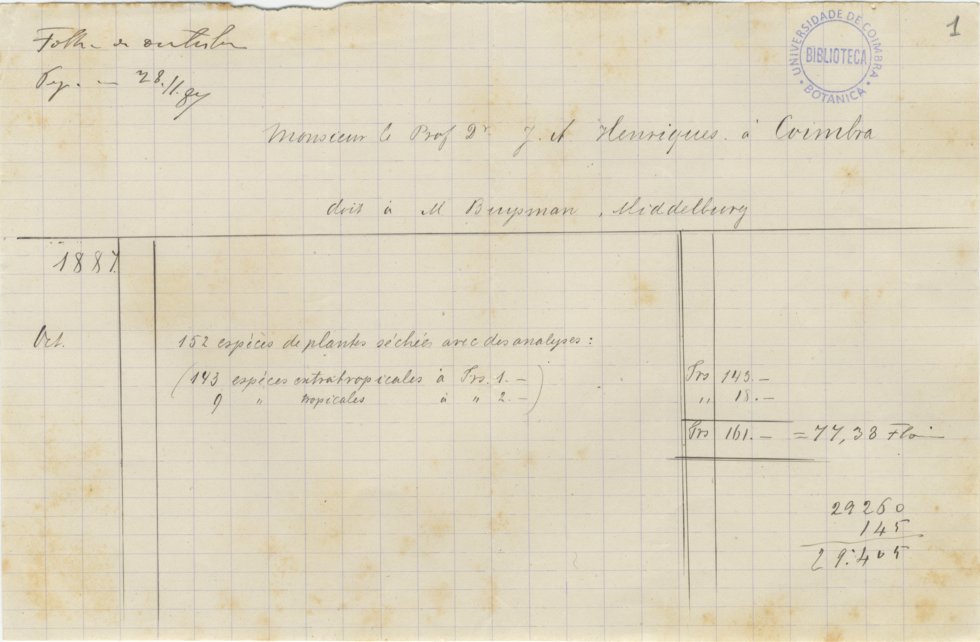 Folha de outubro
Pg. — 28./1.87
1
UNIVERSIDADE DE COIMBRA
BIBLIOTECA
BOTANICA
Monsieur le Prof Dr J. A Henriques à Coimbra
doit à M Buysman, Middelburg
1887
Oct. 152 espèces de plantes séchées avec des analyses:
(143 espèces extratropicales à Frs. 1.—) Frs 143.—
9 " tropicales à " 2.— " 18.—
Frs 161.— = 77,38 Florin
29260
145
29.405